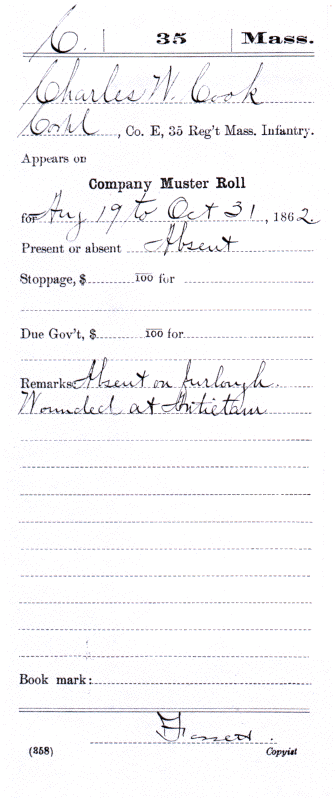 C. | 35 | Mass.
Charles W. Cook
Corpl, Co. E, 35 Reg't Mass. Infantry.
Appears on
Company Muster Roll
for Aug 19 to Oct 31, 1862.
Present or absent Absent
Stoppage, $ 100 for
Due Gov't, $ 100 for
Remarks: Absent on furlough.
Wounded at Antietam
Book mark:
(358) Copyist